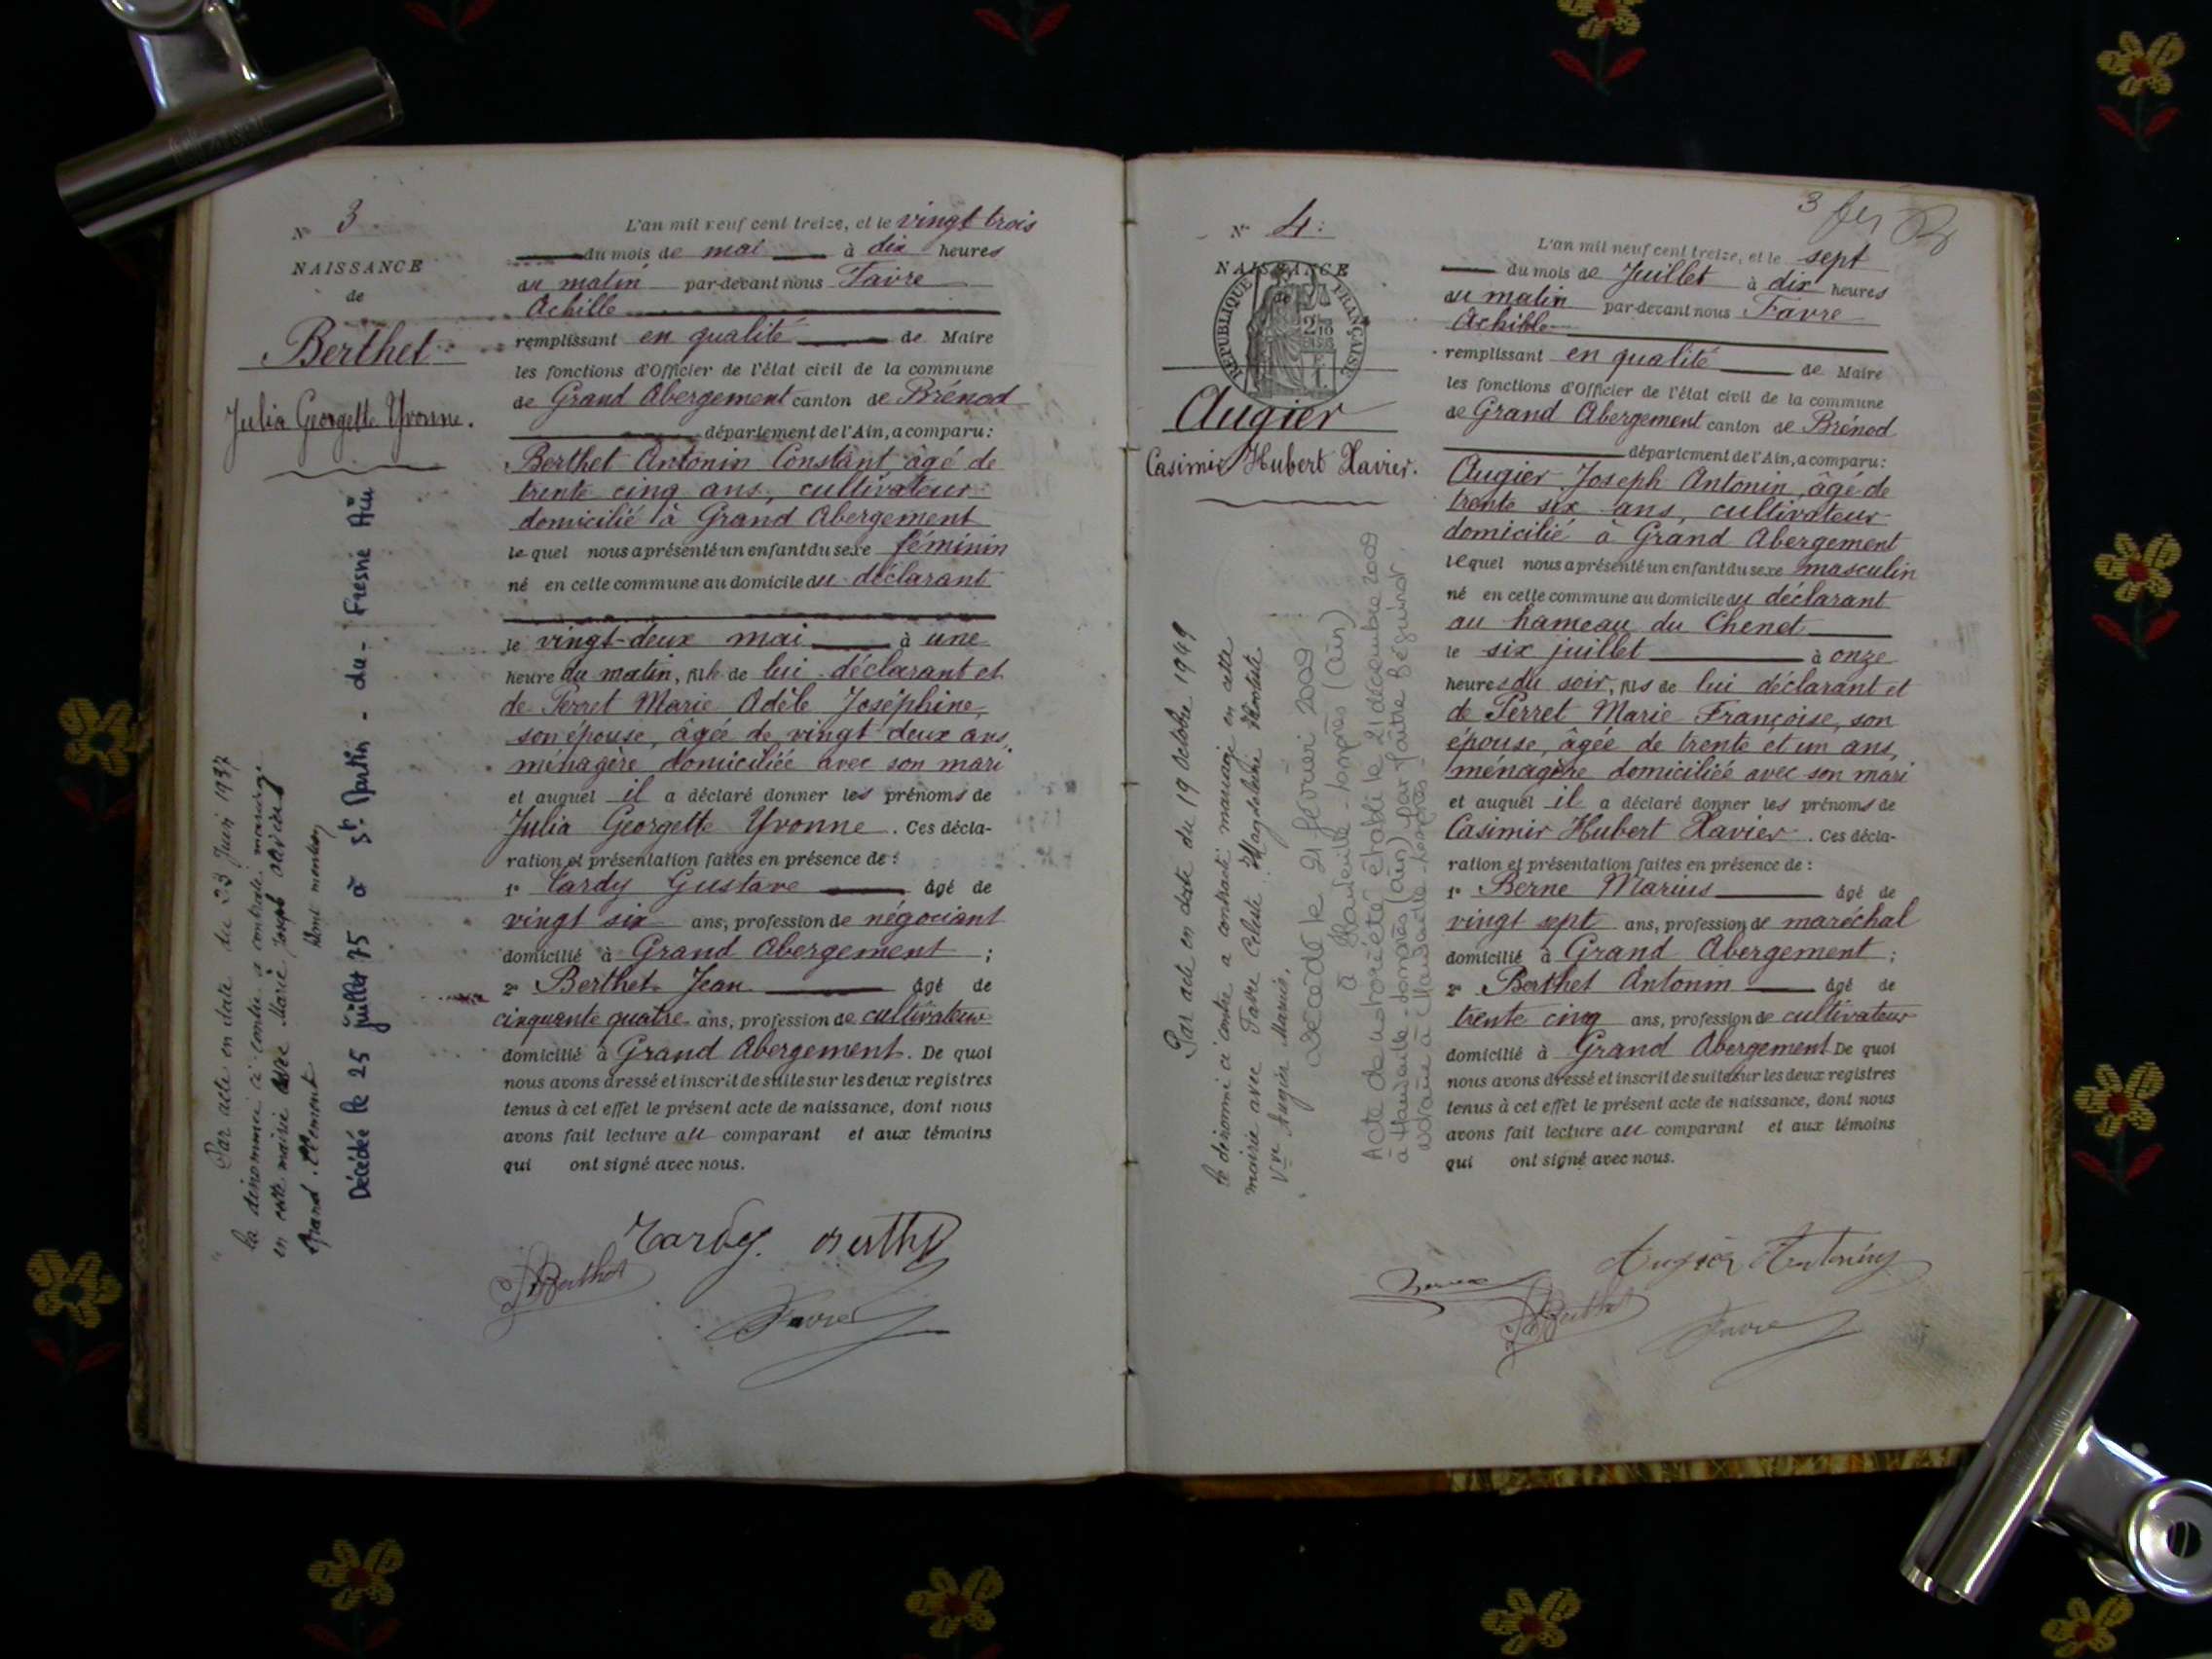 N° 3
NAISSANCE
de
Berthet
Julia Georgette Yvonne.
Par acte en date du 23 Juin 1937
la dénommée ci contre a contracté mariage
en cette mairie avec Marie Joseph
Grand. Clément
Dont mention
Décédée le 25 juillet 75 à St. Martin - du - Fresne Ain
L'an mil neuf cent treize, et le vingt trois
du mois de mai à dix heures
du matin par-devant nous Favre
Achille
remplissant en qualité de Maire
les fonctions d'Officier de l'état civil de la commune
de Grand Abergement canton de Brénod
département de l'Ain, a comparu:
Berthet Antonin Constant âgé de
trente cinq ans, cultivateur
domicilié à Grand Abergement
lequel nous a présenté un enfant du sexe féminin
né en cette commune au domicile du déclarant
le vingt-deux mai à une
heure du matin, fille de lui déclarant et
de Perret Marie Adèle Joséphine,
son épouse, âgée de vingt deux ans,
ménagère domiciliée avec son mari
et auquel il a déclaré donner les prénoms de
Julia Georgette Yvonne. Ces décla-
ration et présentation faites en présence de:
1° Tardy Gustave âgé de
vingt six ans, profession de négociant
domicilié à Grand Abergement;
2° Berthet Jean âgé de
cinquante quatre ans, profession de cultivateur
domicilié à Grand Abergement. De quoi
nous avons dressé et inscrit de suite sur les deux registres
tenus à cet effet le présent acte de naissance, dont nous
avons fait lecture au comparant et aux témoins
qui ont signé avec nous.
Tardy. Berthet
Berthet
Favre
3
N° 4:
NAISSANCE
de
RÉPUBLIQUE FRANÇAISE
Augier
Casimir Hubert Xavier.
Par acte en date du 19 octobre 1949
le dénommé ci contre a contracté mariage en cette
mairie avec Favre Celeste Magdeleine
Vve Augier Marius.
Décédé le 21 février 2009
à Hauteville-Lompnes (Ain)
Acte de notoriété établi le 21 décembre 2009
à Hauteville-Lompnes (Ain) par Maître Béguinot
notaire à Hauteville-Lompnes
L'an mil neuf cent treize, et le sept
du mois de Juillet à dix heures
du matin par-devant nous Favre
Achille
remplissant en qualité de Maire
les fonctions d'Officier de l'état civil de la commune
de Grand Abergement canton de Brénod
département de l'Ain, a comparu:
Augier Joseph Antonin, âgé de
trente six ans, cultivateur
domicilié à Grand Abergement
lequel nous a présenté un enfant du sexe masculin
né en cette commune au domicile du déclarant
au hameau du Chenet
le six juillet à onze
heures du soir, fils de lui déclarant et
de Perret Marie Françoise, son
épouse, âgée de trente et un ans,
ménagère domiciliée avec son mari
et auquel il a déclaré donner les prénoms de
Casimir Hubert Xavier. Ces décla-
ration et présentation faites en présence de:
1° Berne Marius âgé de
vingt sept ans, profession de maréchal
domicilié à Grand Abergement;
2° Berthet Antonin âgé de
trente cinq ans, profession de cultivateur
domicilié à Grand Abergement De quoi
nous avons dressé et inscrit de suite sur les deux registres
tenus à cet effet le présent acte de naissance, dont nous
avons fait lecture au comparant et aux témoins
qui ont signé avec nous.
Augier Antonin
Berthet
Favre